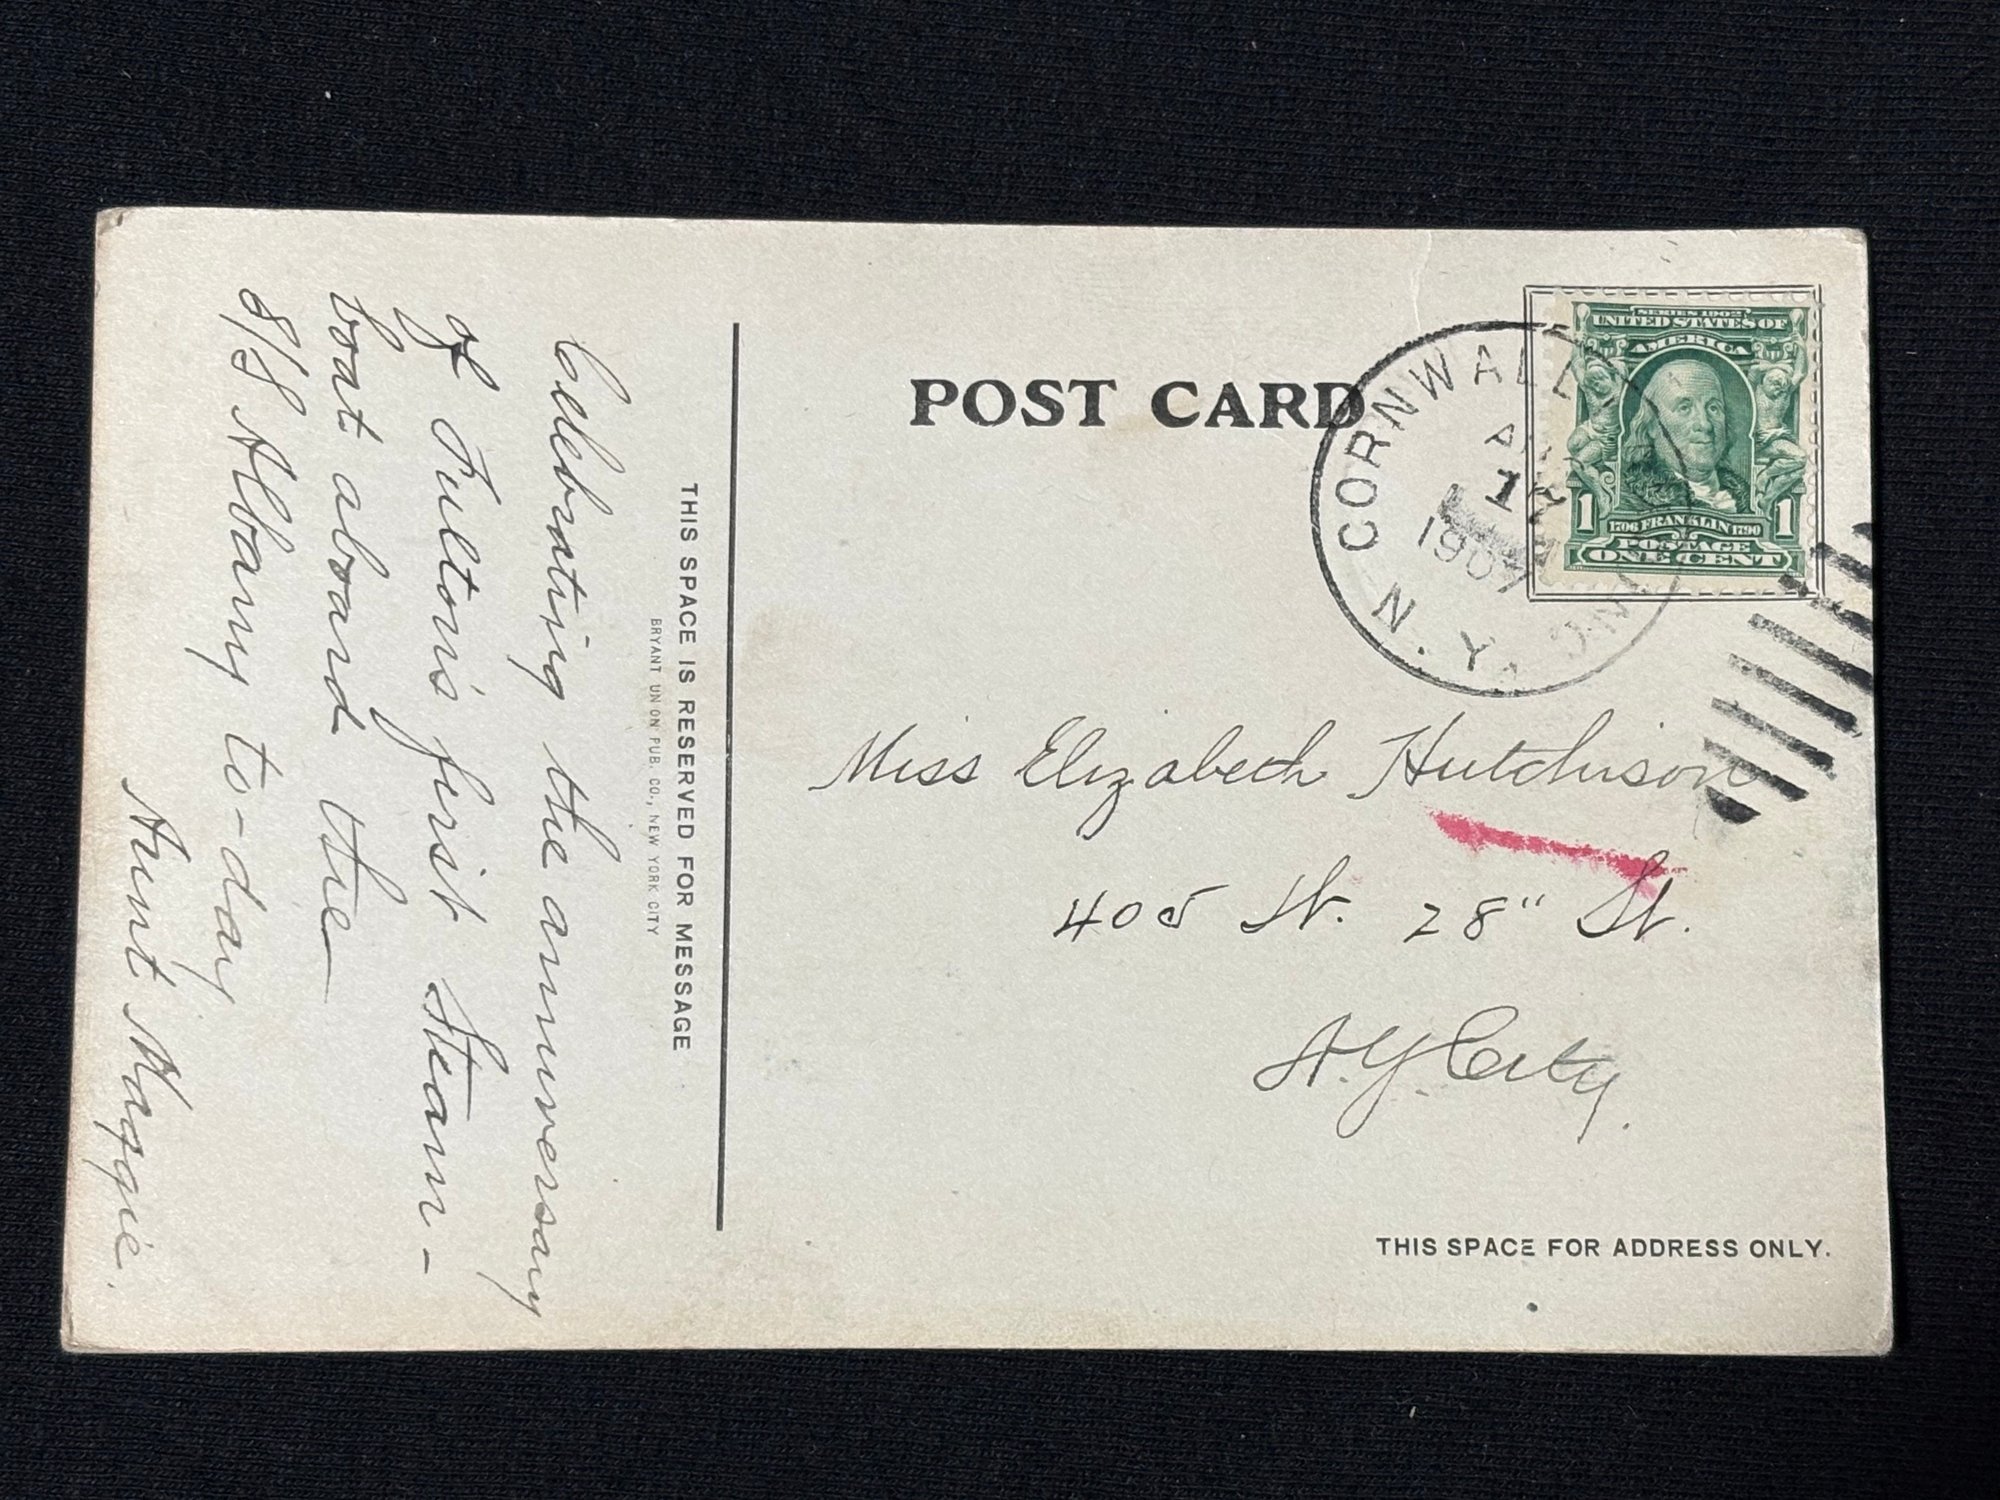 POST CARD
CORNWALL
1907
N.Y.
SERIES 1902
UNITED STATES OF
AMERICA
1 1
1706 FRANKLIN 1790
POSTAGE
ONE CENT
Miss Elizabeth Hutchison
405 W. 28" St.
N.Y. City.
THIS SPACE FOR ADDRESS ONLY.
THIS SPACE IS RESERVED FOR MESSAGE
BRYANT UNION PUB. CO., NEW YORK CITY
Celebrating the anniversary
of Fulton's first steam-
boat aboard the
S/S Albany to-day
Aunt Maggie.